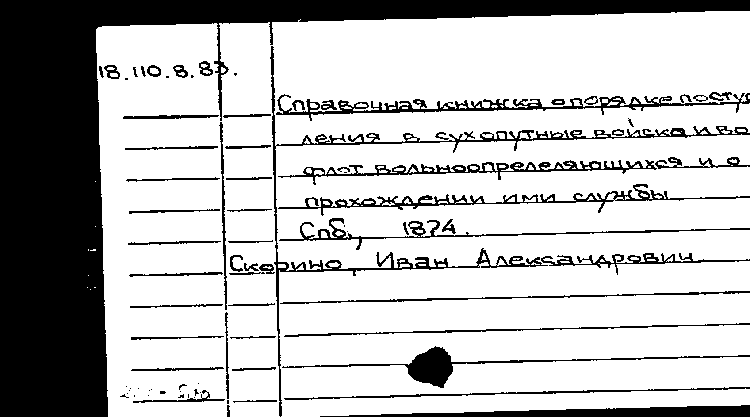 18.110.8.83.
Справочная книжка о порядке посту
ления в сухопутные войска и во
флот вольноопределяющихся и о
прохождении ими службы
Спб., 1874.
Скорино, Иван Александрович